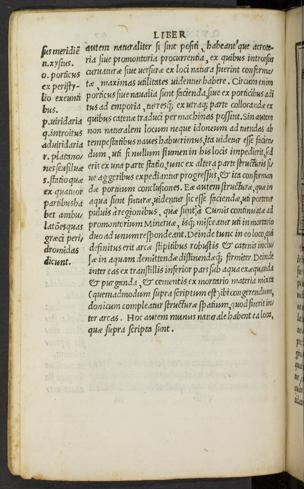 LIBER
sus meridiē
n. xystus.
o. porticus
ex perisfy-
lio exeunti
bus.
p. viridaria
q. introitus
ad viridaria
r. platano/
nes
s. statioq; 
ex quatuor
partibus ha
bet ambu
latōes quas
græci peri/
dromidas
dicunt.
autem naturaliter si sint positi, habeantq́ue acrote-
ria siue promontoria procurrentia, ex quibus introrsus
curuaturæ siue versuræ ex loci natura fuerint conforma-
tæ, maximas vtilitates videntur habere. Circum enim
porticus siue naualia sunt facienda, siue ex porticibus adi
tus ad emporia, turresq́; ex vtraq; parte collocandæ ex
quibus catenæ traduci per machinas possint. Sin autem
non naturalem locum neque idoneum ad tuendas ab
tempestatibus naues habuerimus, ita videtur esse facien-
dum, vti si nullum flumen in his locis impedierit, sed
erit ex vna parte statio, tunc ex altera parte structuris si-
ue aggeribus expediantur progressus, & ita conforman
dæ portuum conclusiones. Eæ autem structuræ, quæ in
aqua sunt futuræ, videntur sic esse faciendæ, vti portetur
puluis à regionibus, quæ sunt à Cumis continuatæ ad
promontorium Mineruæ, isq́; misceatur vti in mortario
duo ad vnum respondeant. Deinde tunc in eo loco, qui
definitus erit arcæ stipitibus robustis & catenis inclu
sæ in aquam demittendæ destinandæq́; firmiter. Deinde
inter eas ex transtillis inferior pars sub aqua exæquanda
& purganda, & cementis ex mortario materia mixta
(quemadmodum supra scriptum est) ibi congerendum,
donicum compleatur structuræ spatium, quod fuerit in/
ter arcas. Hoc autem munus naturale habent ea loca,
quæ supra scripta sunt.